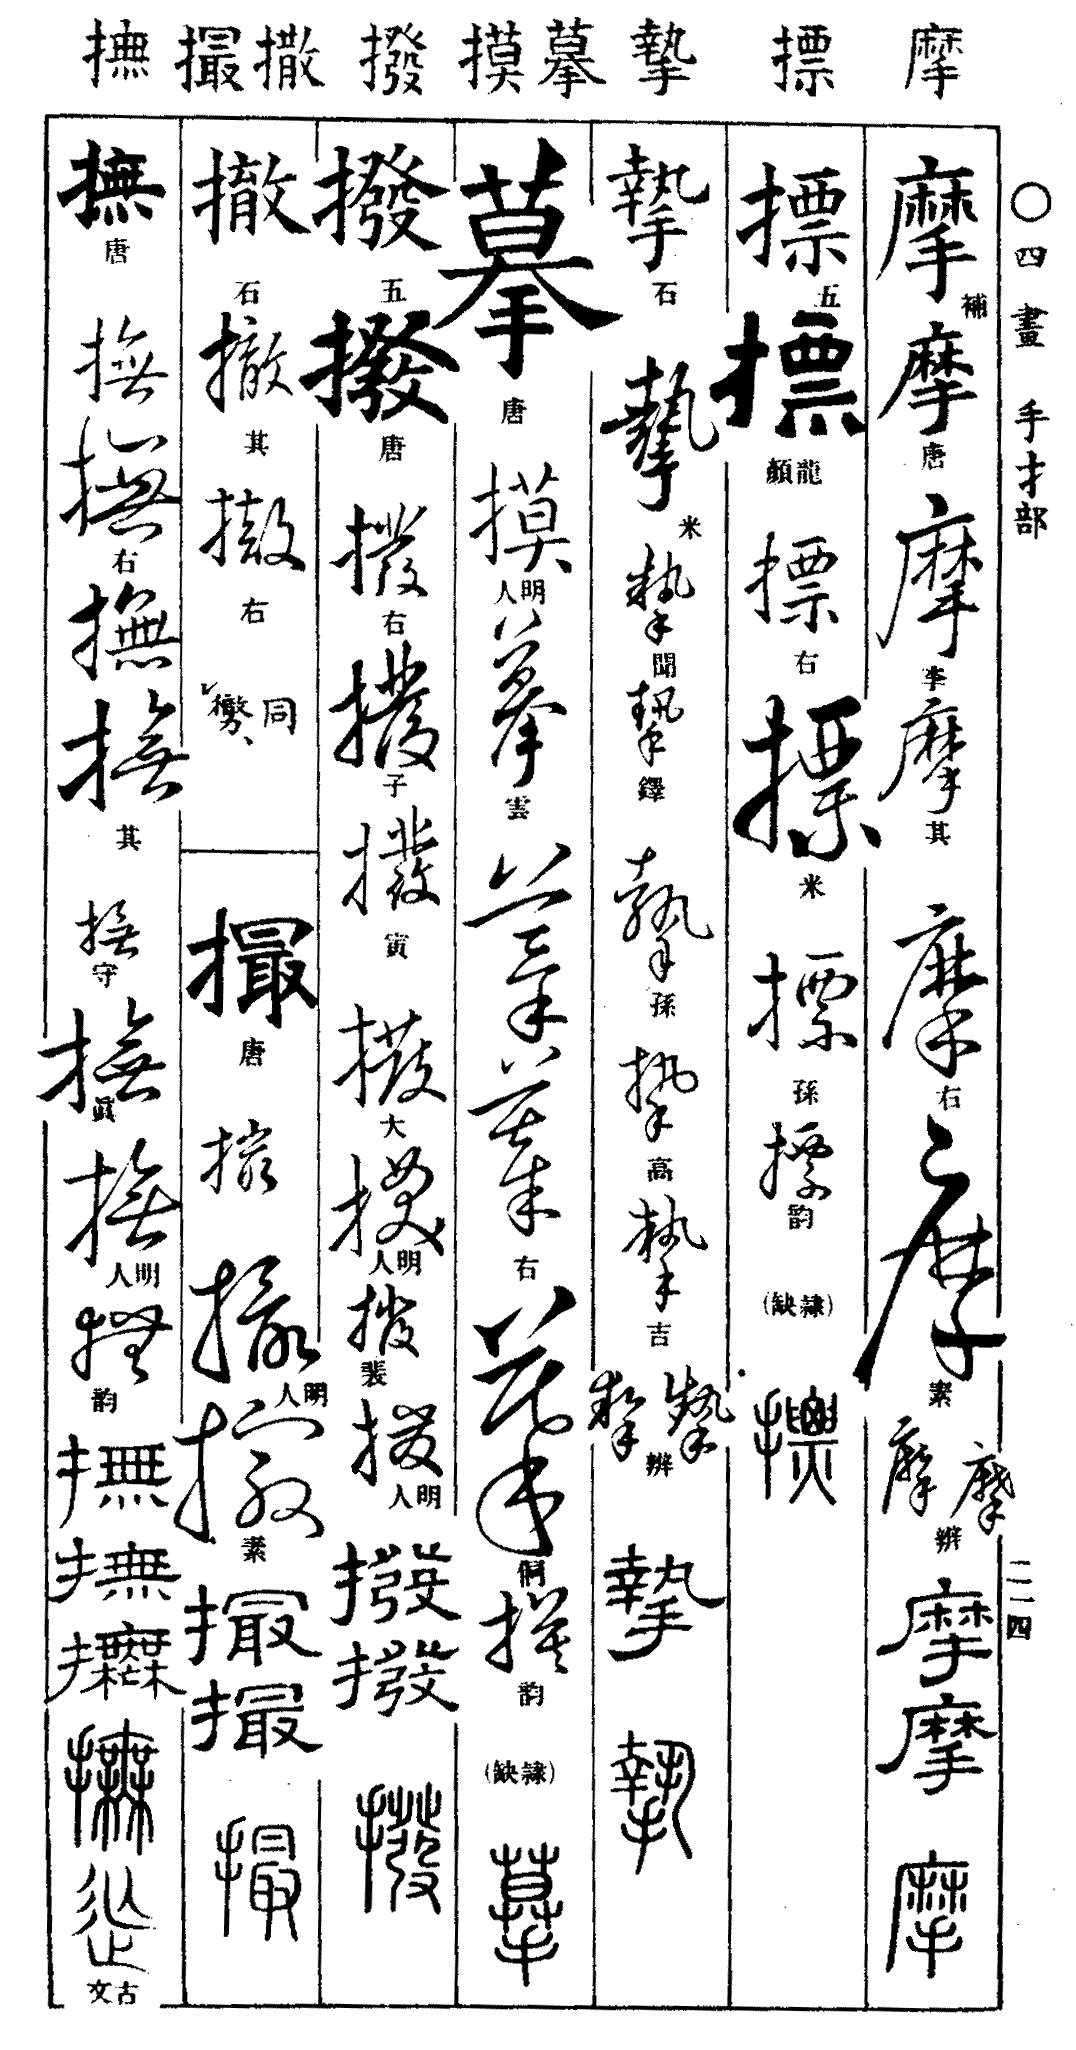 摩 標 摯 摹 摸 撥 撒 撮 撫
〇四畫 手扌部
二一四
摩 補 摩 唐 摩 李 摩 其 摩 右 摩 素 摩 摩 辨 摩 摩 摩
標 五 標 顏龍 標 右 標 米 標 孫 標 韵 (缺隸) 標
摯 石 摯 米 摯 聞 摯 鐸 摯 孫 摯 高 摯 吉 摯 摯 辨 摯 摯
摹 唐 摸 人明 摹 雲 摹 摹 右 摹 摸 韵 (缺隸) 摹
撥 五 撥 唐 撥 右 撥 子 撥 寅 撥 大 撥 人明 撥 裴 撥 人明 撥 撥 撥
撤 石 撤 其 撤 右 同
撮 唐 撮 撮 人明 撮 素 撮 撮 撮
撫 唐 撫 撫 右 撫 撫 其 撫 守 撫 眞 撫 人明 撫 韵 撫 撫 撫 撫 文古